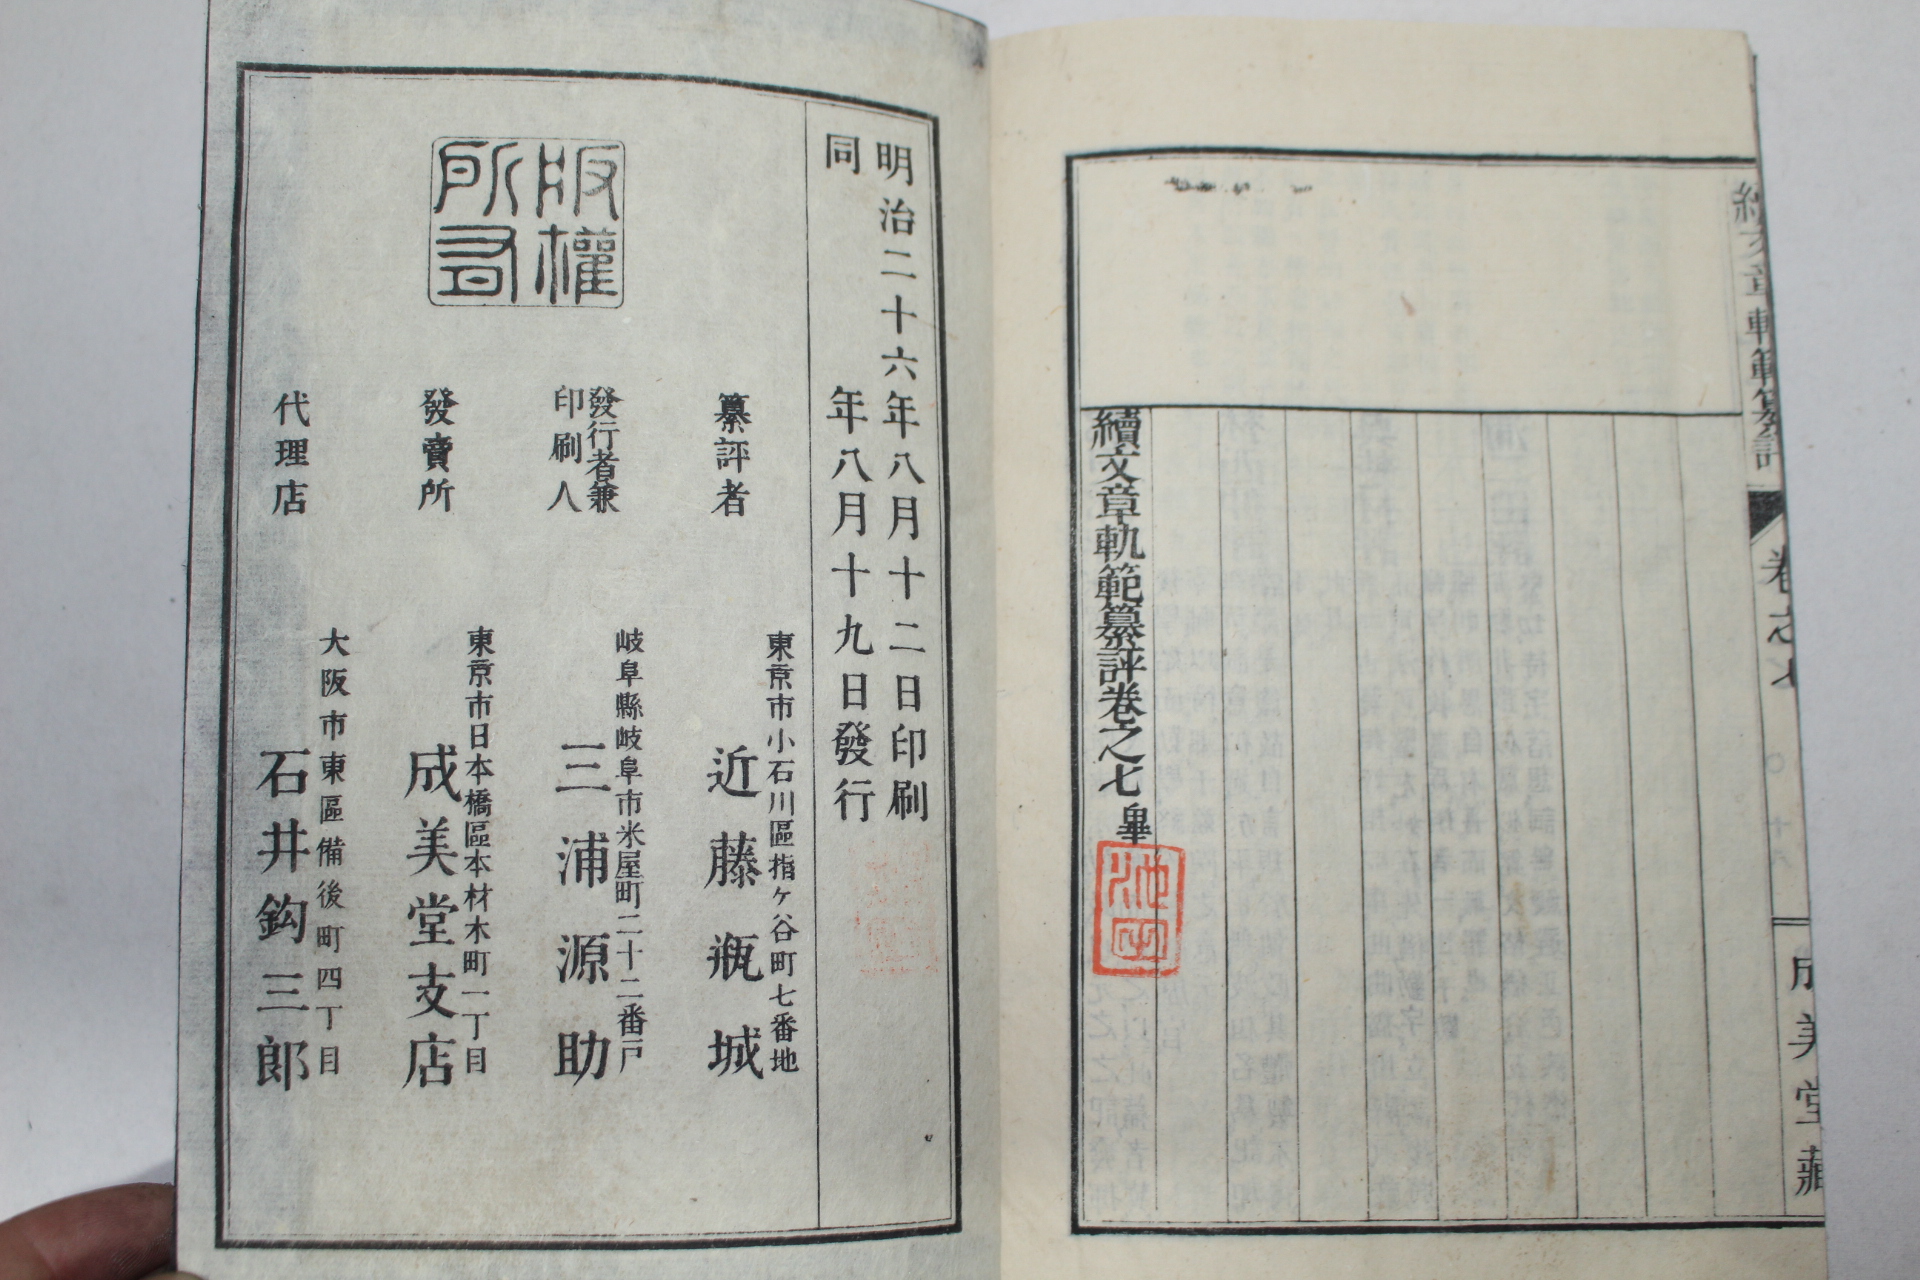 續文章軌範纂評
卷之七
成美堂藏
續文章軌範纂評卷之七畢
明治二十六年八月十二日印刷
同年八月十九日發行
版權所有
纂評者
東京市小石川區指ヶ谷町七番地
近藤瓶城
發行者兼
印刷人
岐阜縣岐阜市米屋町二十二番戸
三浦源助
發賣所
東京市日本橋區本材木町一丁目
成美堂支店
代理店
大阪市東區備後町四丁目
石井鈎三郎